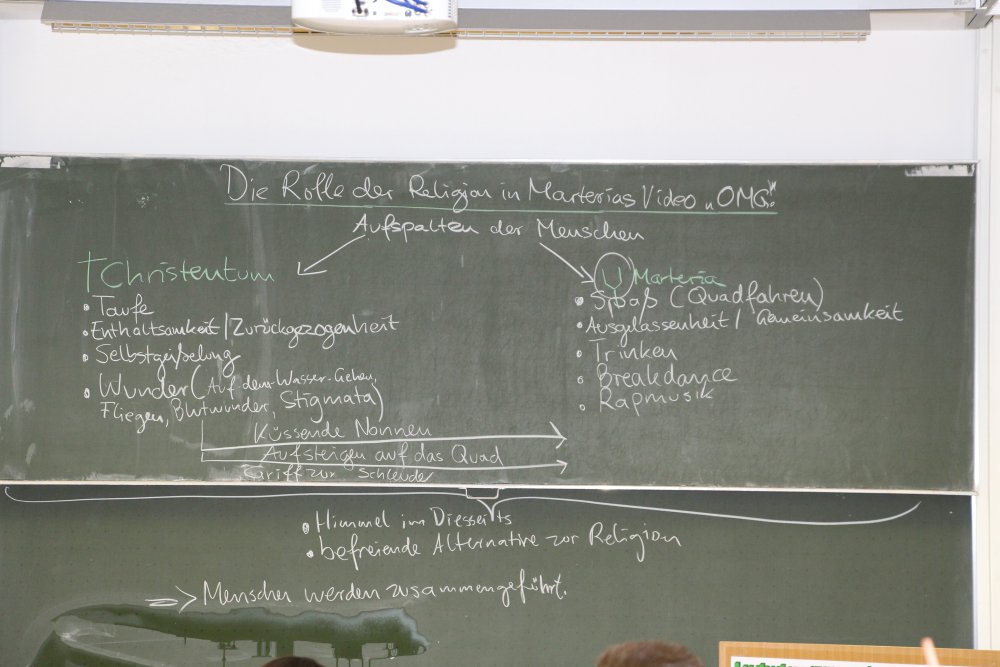 Die Rolle der Religion in Marterias Video „OMG“
Aufspalten der Menschen
Christentum
• Taufe
• Enthaltsamkeit / Zurückgezogenheit
• Selbstgeißelung
• Wunder (Auf-dem-Wasser-Gehen,
Fliegen, Blutwunder, Stigmata)
U Marteria
• Spaß (Quadfahren)
• Ausgelassenheit / Gemeinsamkeit
• Trinken
• Breakdance
• Rapmusik
Küssende Nonnen
Aufsteigen auf das Quad
Griff zur Schleuder
• Himmel im Diesseits
• befreiende Alternative zur Religion
=> Menschen werden zusammengeführt.